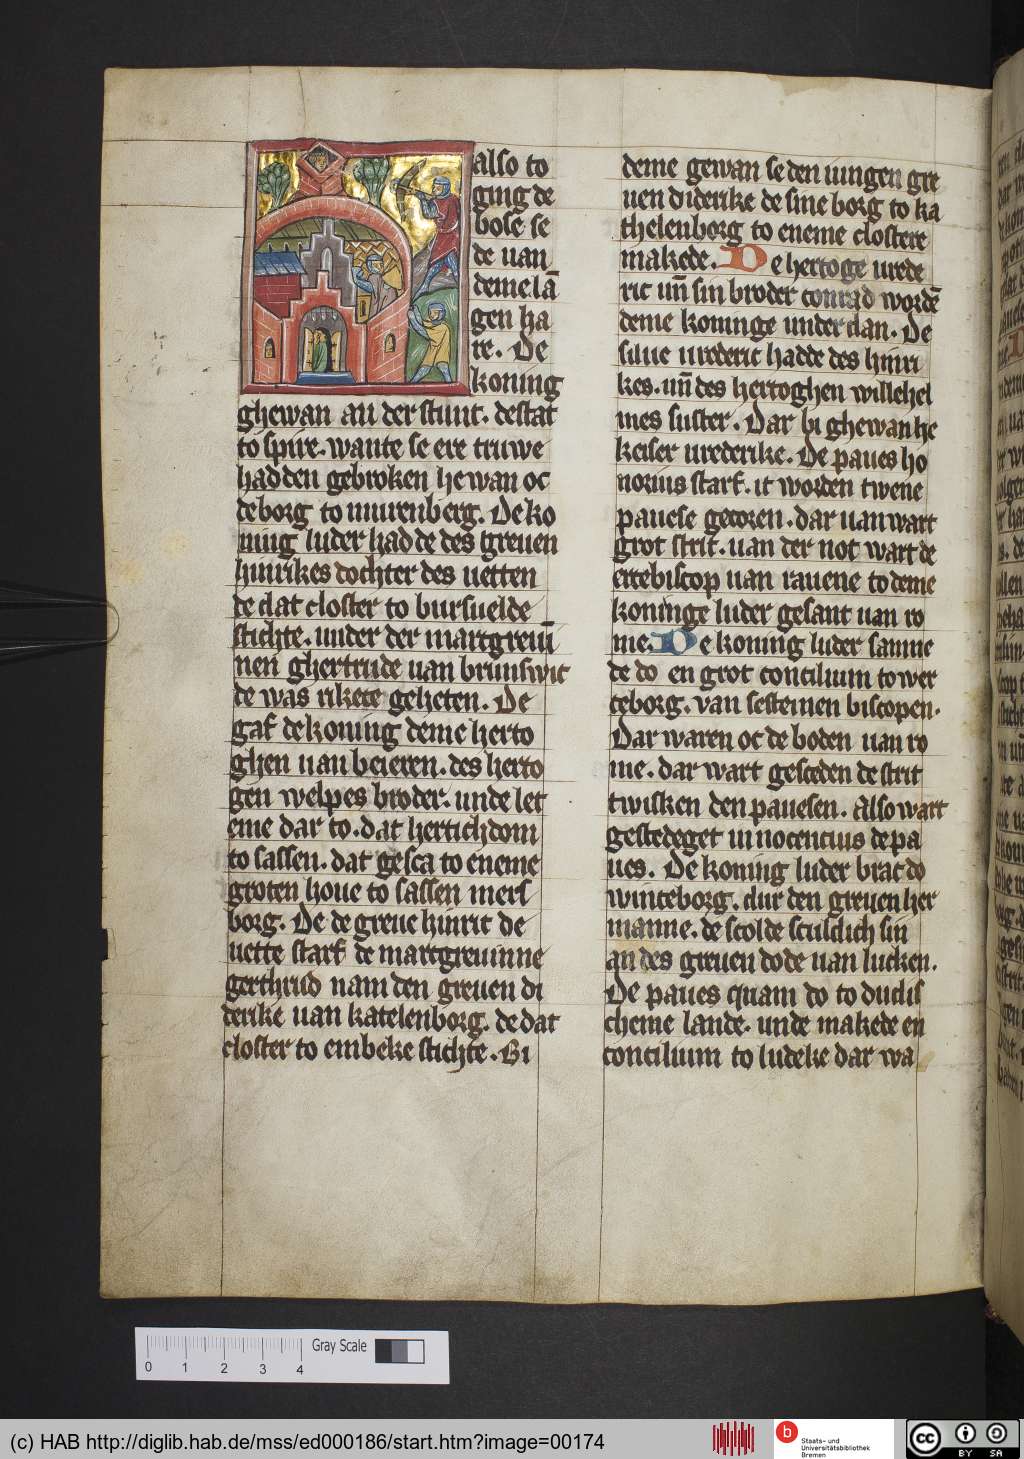 also to
ging de
bose se
de uan
deme lā
gen ha
re. De
koning
ghewan an der stunt. de stat
to spire. wante se ere truwe
hadden gebroken he wan oc
de borg to nurenberg. De ko
ning luder hadde des greuen
hinrikes dochter des uetten
de dat closter to bursuelde
stichte. under der marcgreuī
nen ghertrude uan brunswic
de was rikece geheten. De
gaf de koning deme herto
ghen uan beieren. des herto
gen welpes broder. unde let
eme dar to. dat hertichdom
to sassen. dat gesca to eneme
groten houe to sassen mers
borg. De de greue hinric de
uette starf de marcgreuinne
gerthrud nam den greuen di
derike uan katelenborg. de dat
closter to embeke stichte. Bi
deme gewan se den iungen gre
uen diderike de sine borg to ka
thelenborg to eneme clostere
makede. De hertoge urede
ric uñ sin broder conrad wordē
deme koninge underdan. De
silue urederic hadde des hinri
kes. uñ des hertoghen willehel
mes suster. Dar bi ghewan he
keiser urederike. De paues ho
norius starf. it worden twene
pauese gecoren. dar uan wart
grot strit. uan der not wart de
ercebiscop uan rauene to deme
koninge luder gesant uan ro
me. De koning luder samne
de do en grot concilium to wer
ceborg. van sesteinen biscopen.
Dar waren oc de boden uan ro
me. dar wart gesceden de strit
twisken den pauesen. also wart
gestedeget innocencius de pa
ues. De koning luder brac do
winceborg. dur den greuen her
manne. de scolde sculdich sin
an des greuen dode uan lucken.
De paues quam do to dudis
cheme lande. unde makede en
concilium to ludeke dar wa
0 1 2 3 4
Gray Scale
(c) HAB http://diglib.hab.de/mss/ed000186/start.htm?image=00174
b
Staats- und
Universitätsbibliothek
Bremen
cc
BY SA